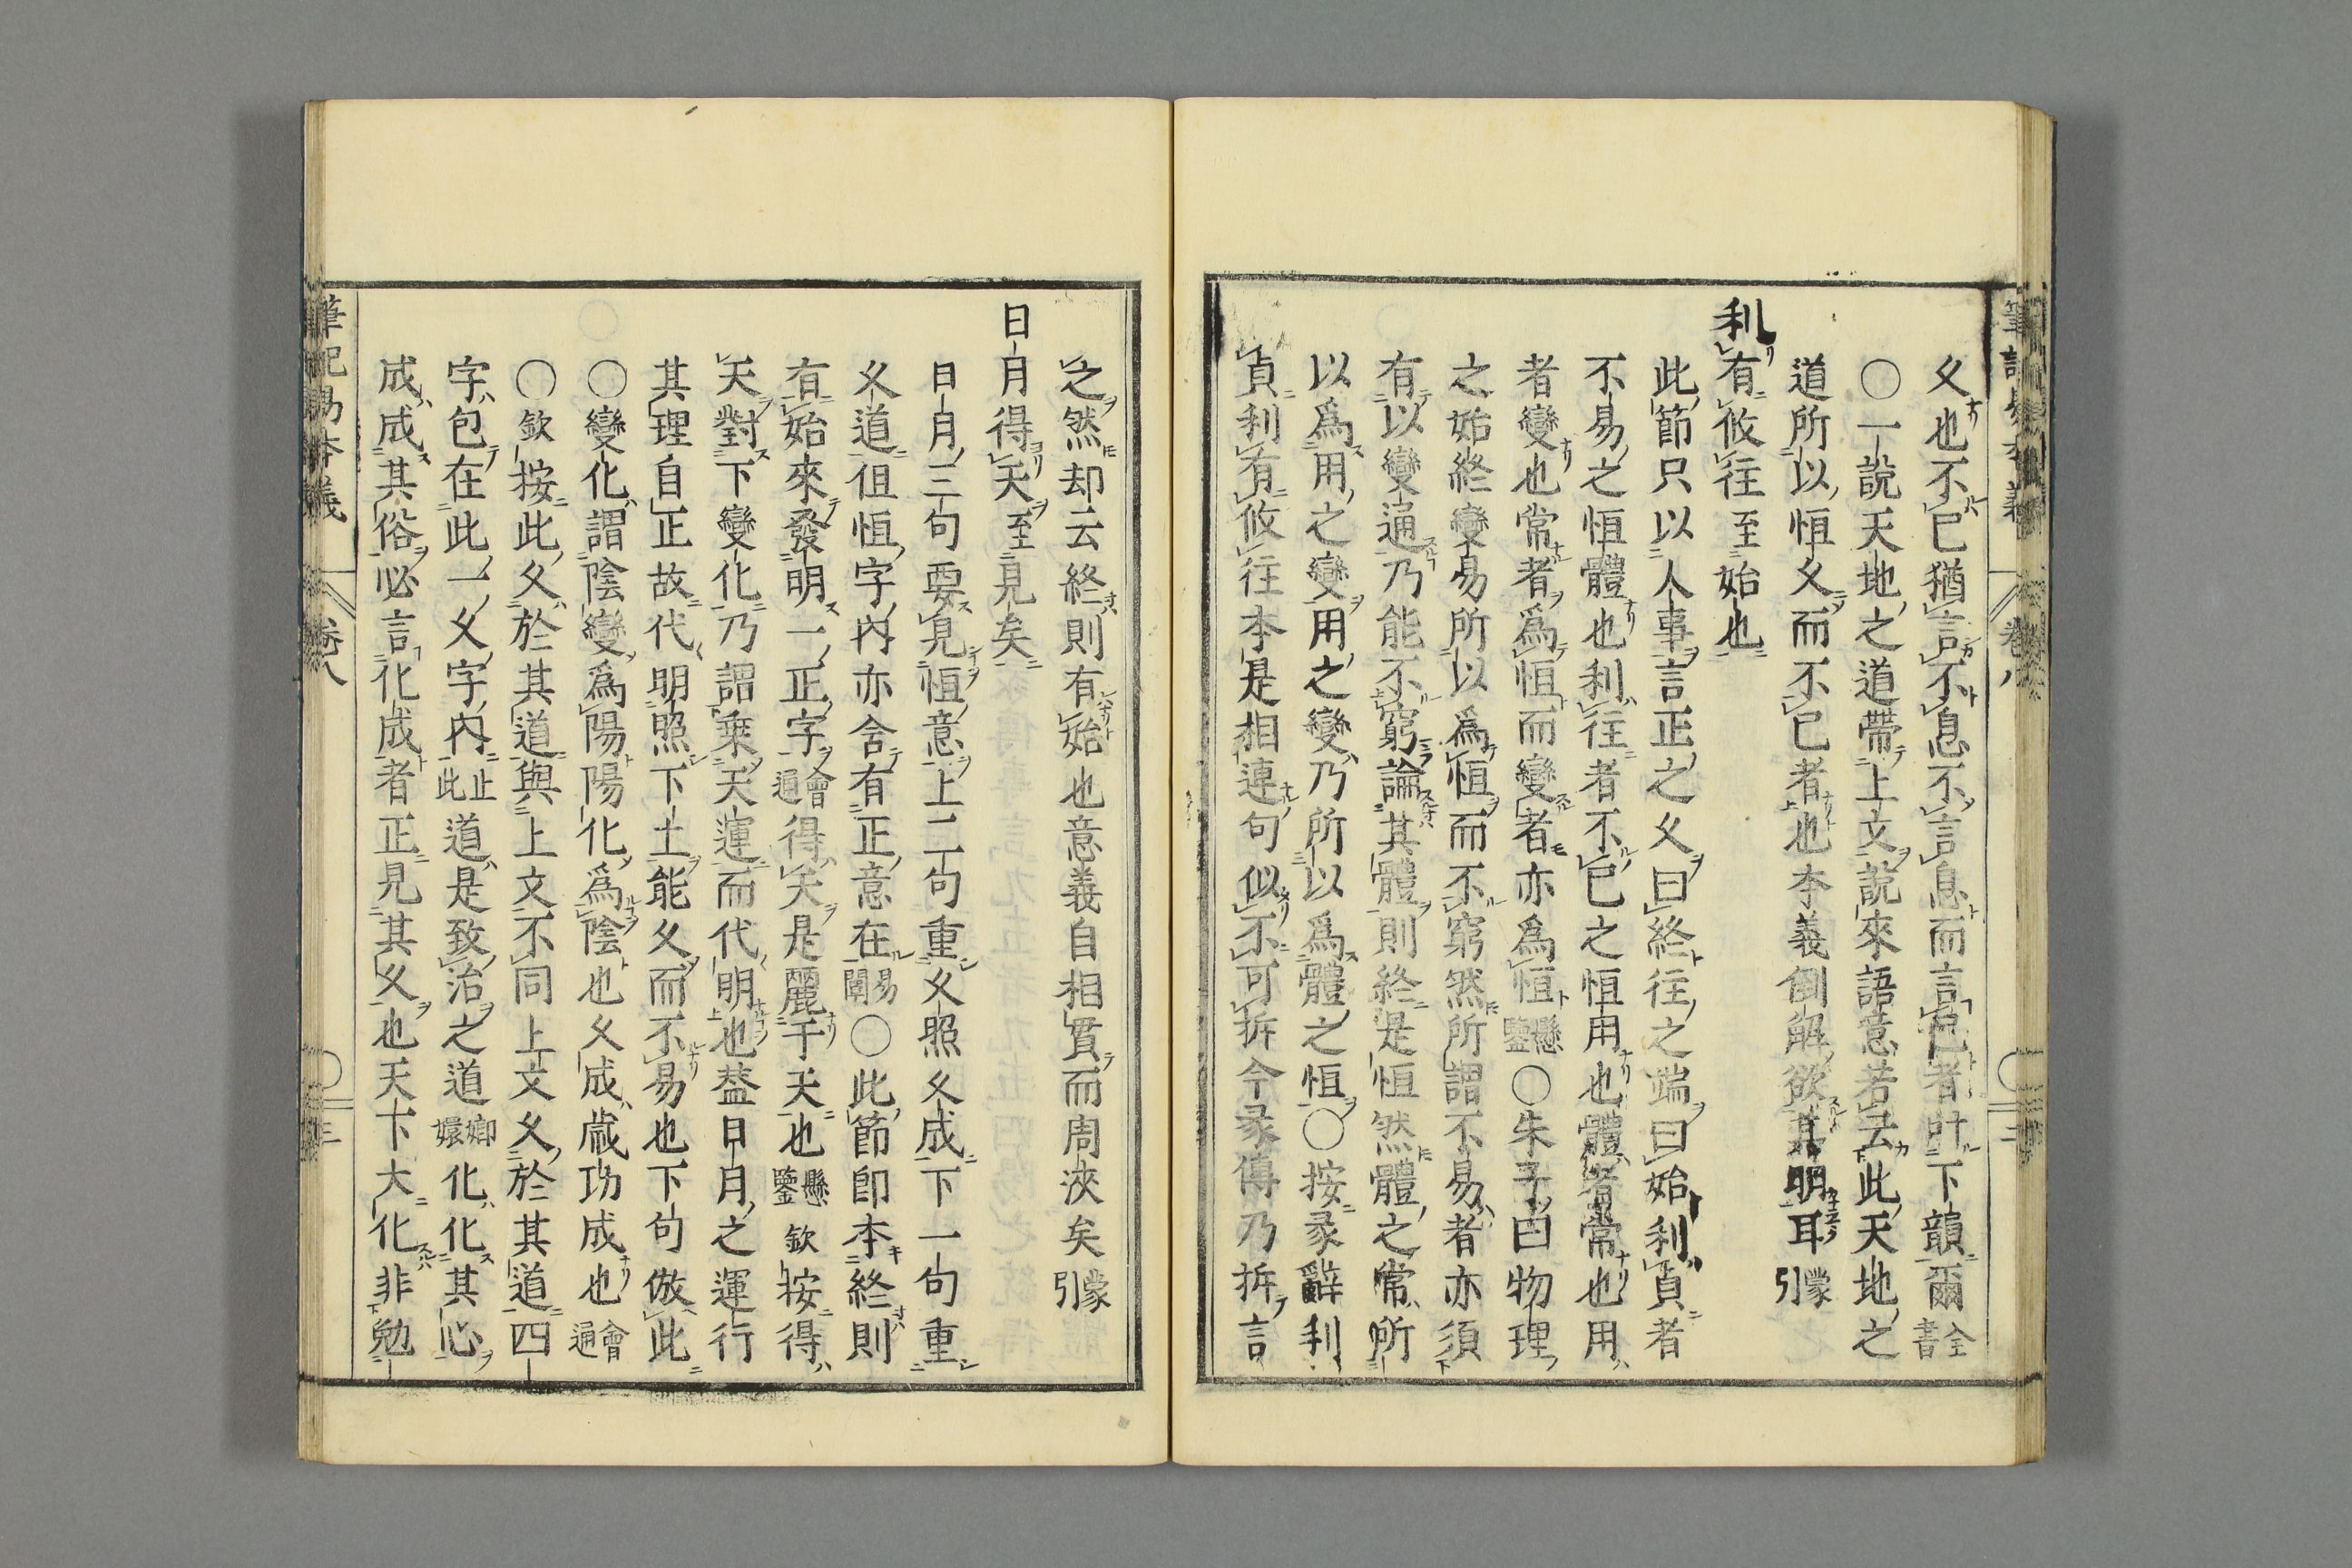 筆記易本義 卷八 三
久也不已猶言不息不言息而言已者叶下韻爾全書
〇一說天地之道帶上文說來語意若云此天地之
道所以恒久而不已者也本義倒解欲其明耳蒙引
利有攸往至始也
此節只以人事言正之久曰終往之端曰始利貞者
不易之恒體也利往者不已之恒用也體者常也用
者變也常者爲恒而變者亦爲恒懸鑒〇朱子曰物理
之始終變易所以爲恒而不窮然所謂不易者亦須
有以變通乃能不窮論其體則終是恒然體之常所
以爲用之變用之變乃所以爲體之恒〇按彖辭利
貞利有攸往本是相連句似不可拆今彖傳乃拆言
之然却云終則有始也意義自相貫而周浹矣蒙引
日月得天至見矣
日月三句要見恒意上二句重久照久成下一句重
久道但恒字內亦含有正意在易闡〇此節卽本終則
有始來發明一正字會通得天是麗于天也懸鑒欽按得
天對下變化乃謂乘天運而代明也蓋日月之運行
其理自正故代明照下土能久而不易也下句倣此
〇變化謂陰變爲陽陽化爲陰也久成歲功成也會通
〇欽按此久於其道與上文不同上文久於其道四
字包在此一久字內止此道是致治之道鄉嬛化化其心
成成其俗必言化成者正見其久也天下大化非勉
筆記易本義 卷八 三